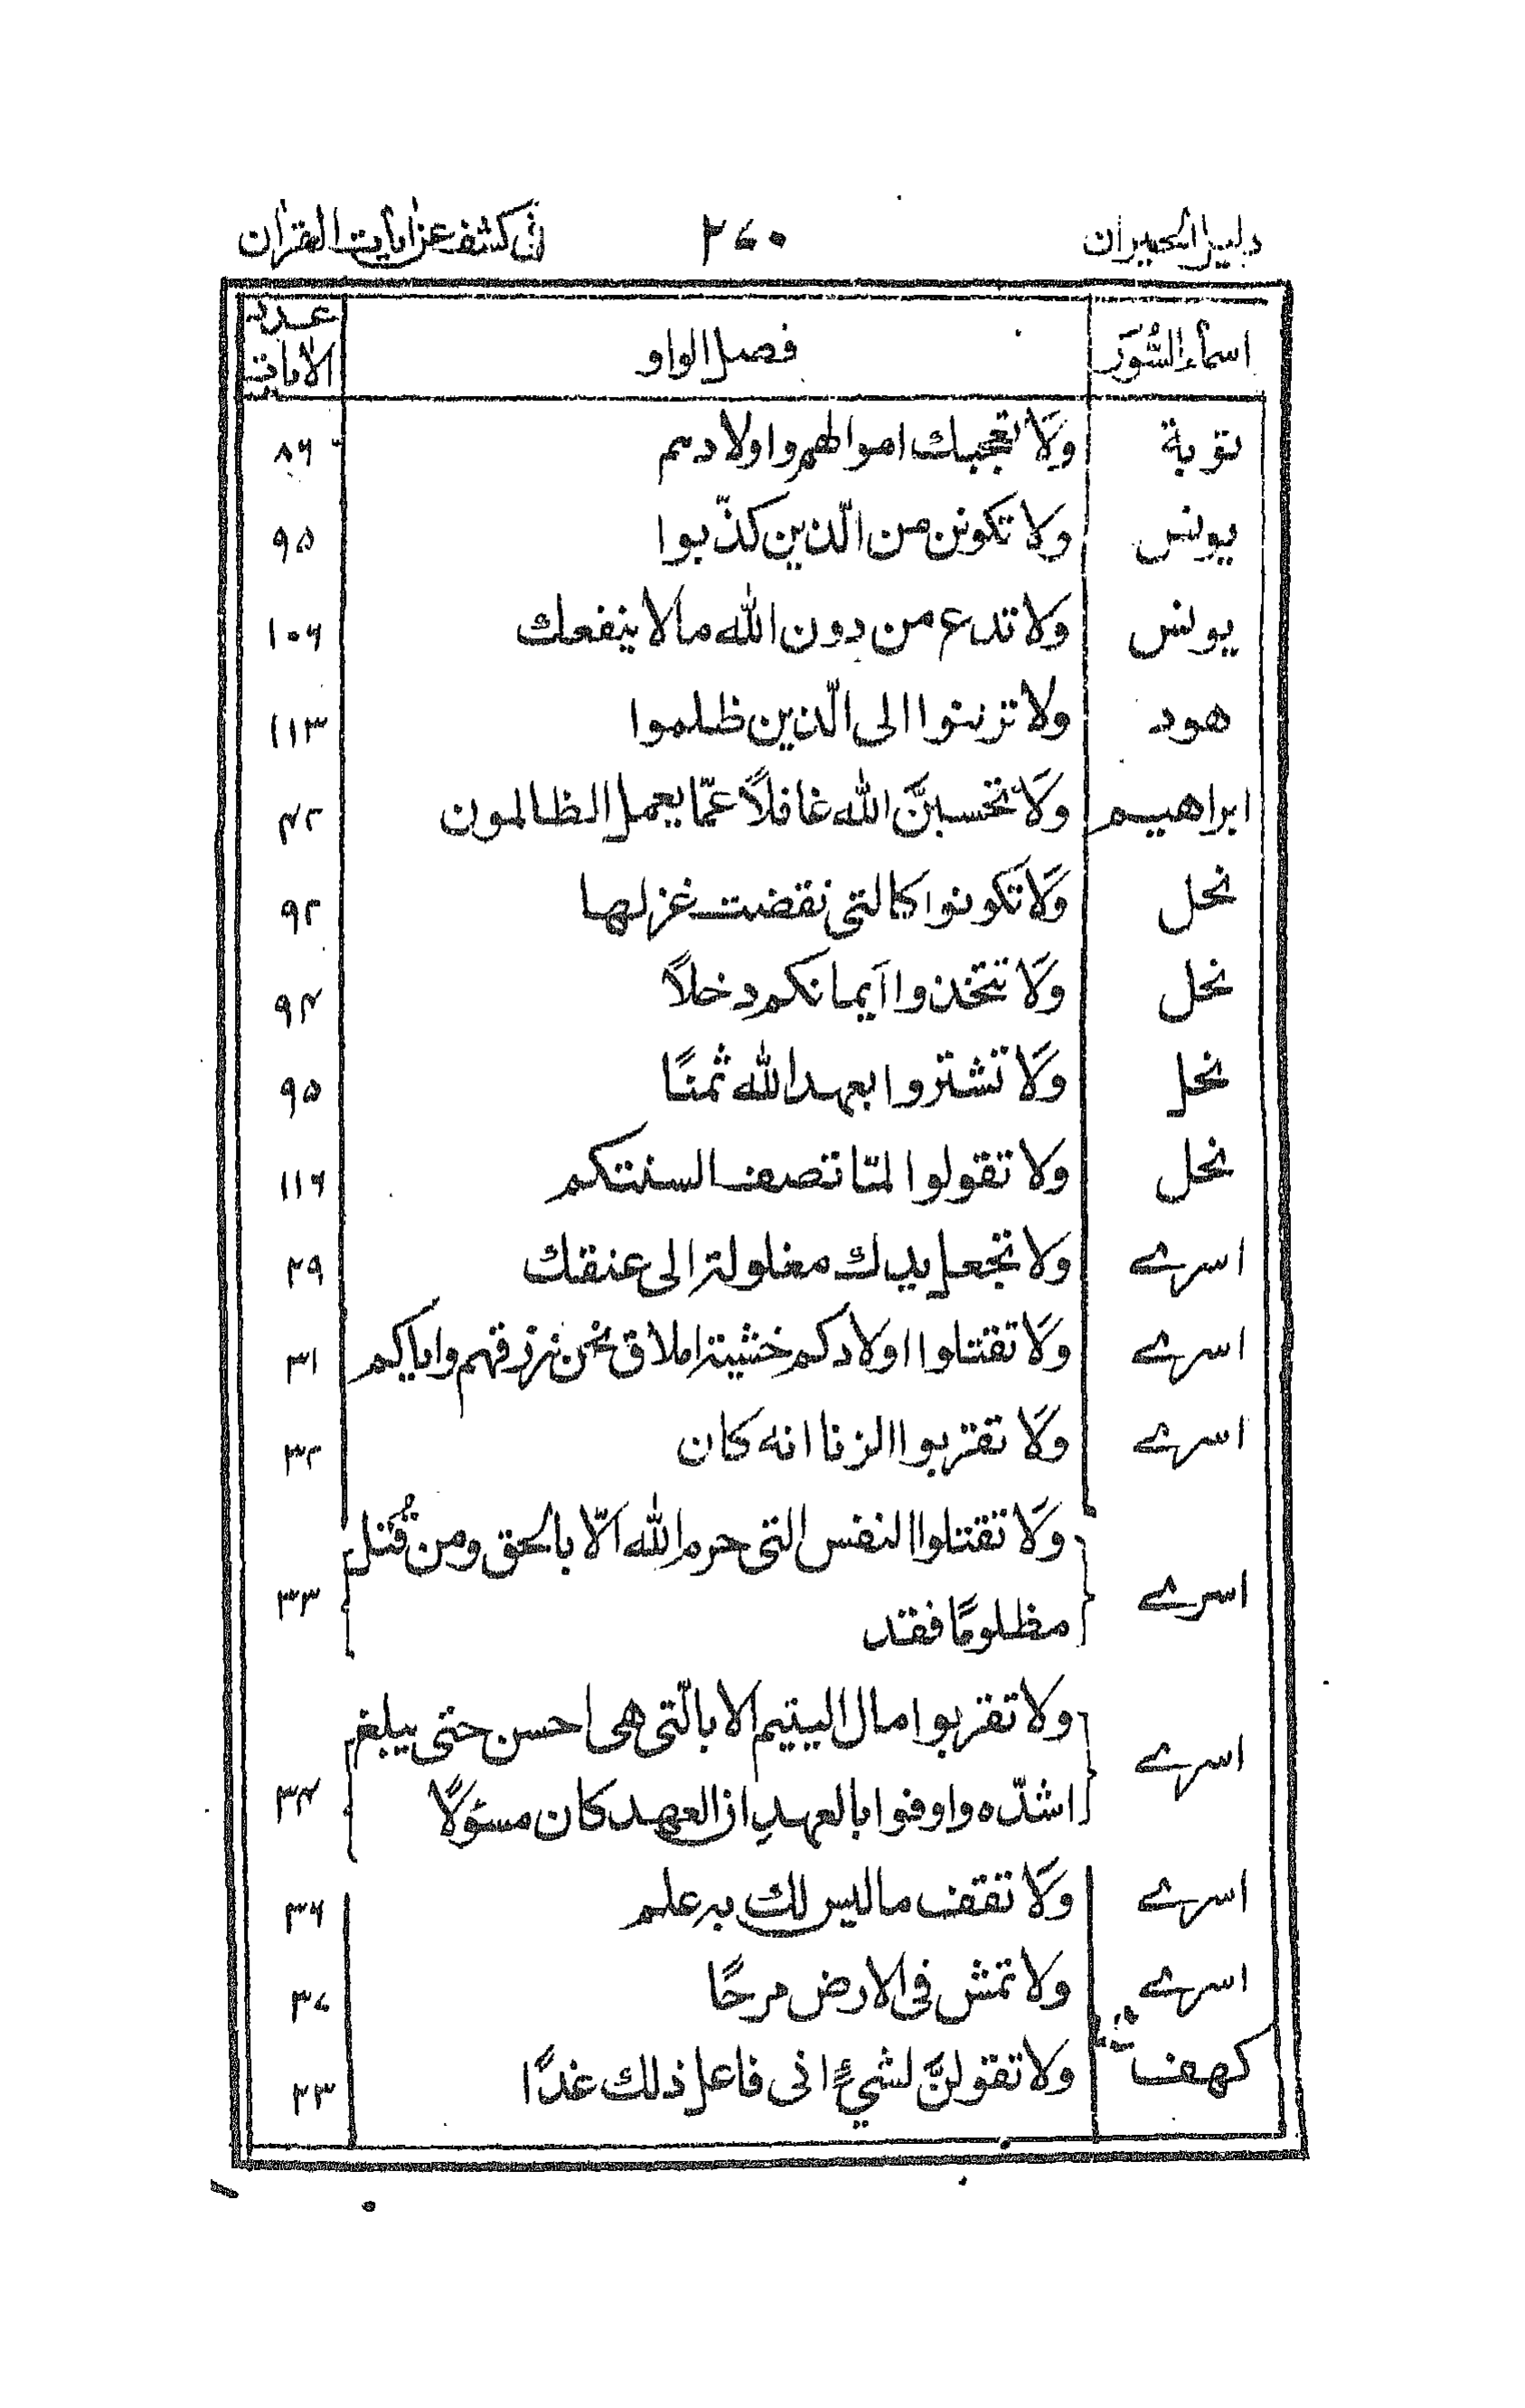 دليل الحيران ٢٧٠ فى كشف عن ايات القران
اسماء السُّوَر فصل الواو عدد الايات
توبة وَلَا تعجبك اموالهم واولادهم ٨٦
يونس ولا تكونن من الّذين كذّبوا ٩٥
يونس ولا تدع من دون الله مالا ينفعك ١٠٦
هود ولا تركنوا الى الّذين ظلموا ١١٣
ابراهيم وَلَا تحسبنَّ الله غافلًا عمّا يعمل الظالمون ٤٢
نحل وَلَا تَكونوا كالتى نقضت غزلها ٩٢
نحل وَلَا تتخذوا اَيمانكم دخلًا ٩٤
نحل وَلَا تشتروا بعهد الله ثمنًا ٩٥
نحل ولا تقولوا لمّا تصف السنتكم ١١٦
اسرے ولا تجعل يدك مغلولة الى عنقك ٢٩
اسرے وَلَا تقتلوا اولادكم خشية املاق نحن نرزقهم واياكم ٣١
اسرے وَلَا تقربوا الزنا انه كان ٣٢
اسرے وَلَا تقتلوا النفس التى حرم الله الّا بالحق ومن قُتل
مظلومًا فقد ٣٣
اسرے ولا تقربوا مال اليتيم الا بالّتى هى احسن حتى يبلغ
اشدّه واوفوا بالعهدِ ان العهد كان مسؤلًا ٣٤
اسرے وَلَا تقف ماليس لك به علم ٣٦
اسرے ولا تمش فى الارض مرحًا ٣٧
كهف ولا تقولنَّ لشيءٍ انى فاعل ذلك غدًا ٢٣